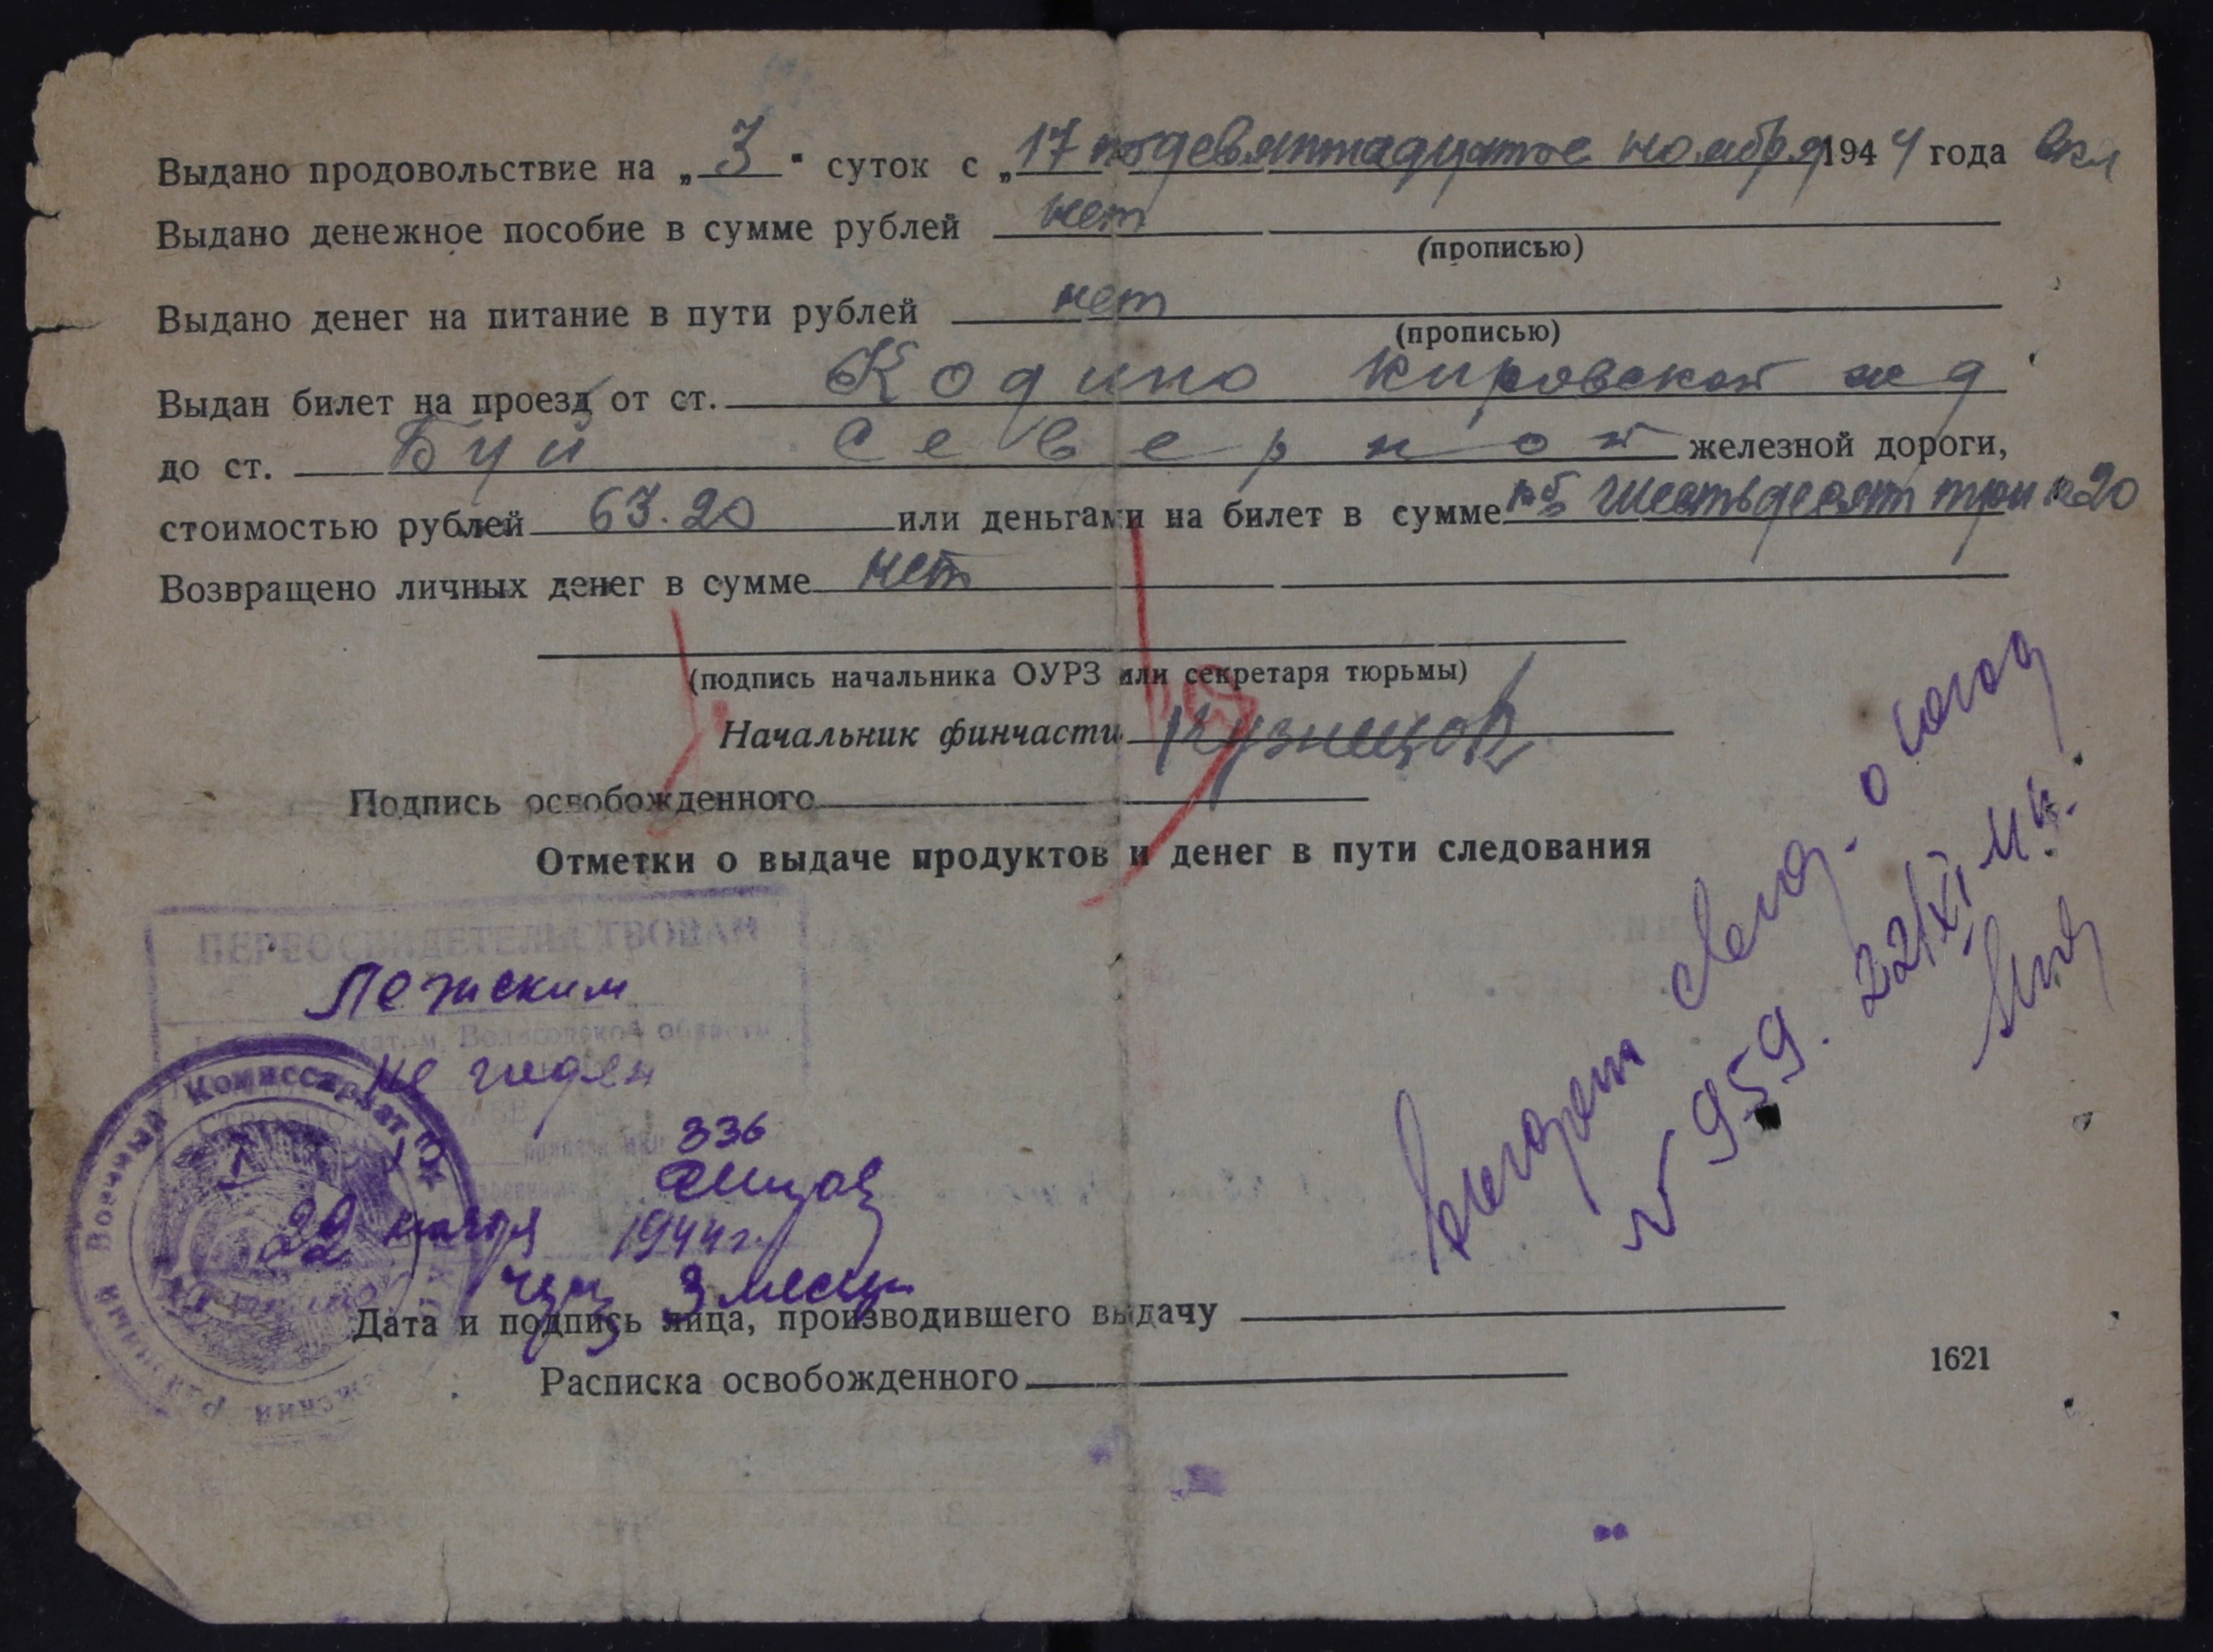 Выдано продовольствие на „3" суток с „17 по девятнадцатое ноября 1944 года вкл
Выдано денежное пособие в сумме рублей нет
(прописью)
Выдано денег на питание в пути рублей нет
(прописью)
Выдан билет на проезд от ст. Кодино Кировской ж д
до ст. Буй Северной железной дороги,
стоимостью рублей 63.20 или деньгами на билет в сумме шестьдесят три к 20
Возвращено личных денег в сумме нет
(подпись начальника ОУРЗ или секретаря тюрьмы)
Начальник финчасти Кузнецов
Подпись освобожденного
Отметки о выдаче продуктов и денег в пути следования
ПЕРЕОСВИДЕТЕЛЬСТВОВАН
Лежским
Вологодской области
не годен
336
22 ноября 1944 г.
3 месяц
Военный Комиссариат
Дата и подпись лица, производившего выдачу
Расписка освобожденного
1621
959. 22/XI